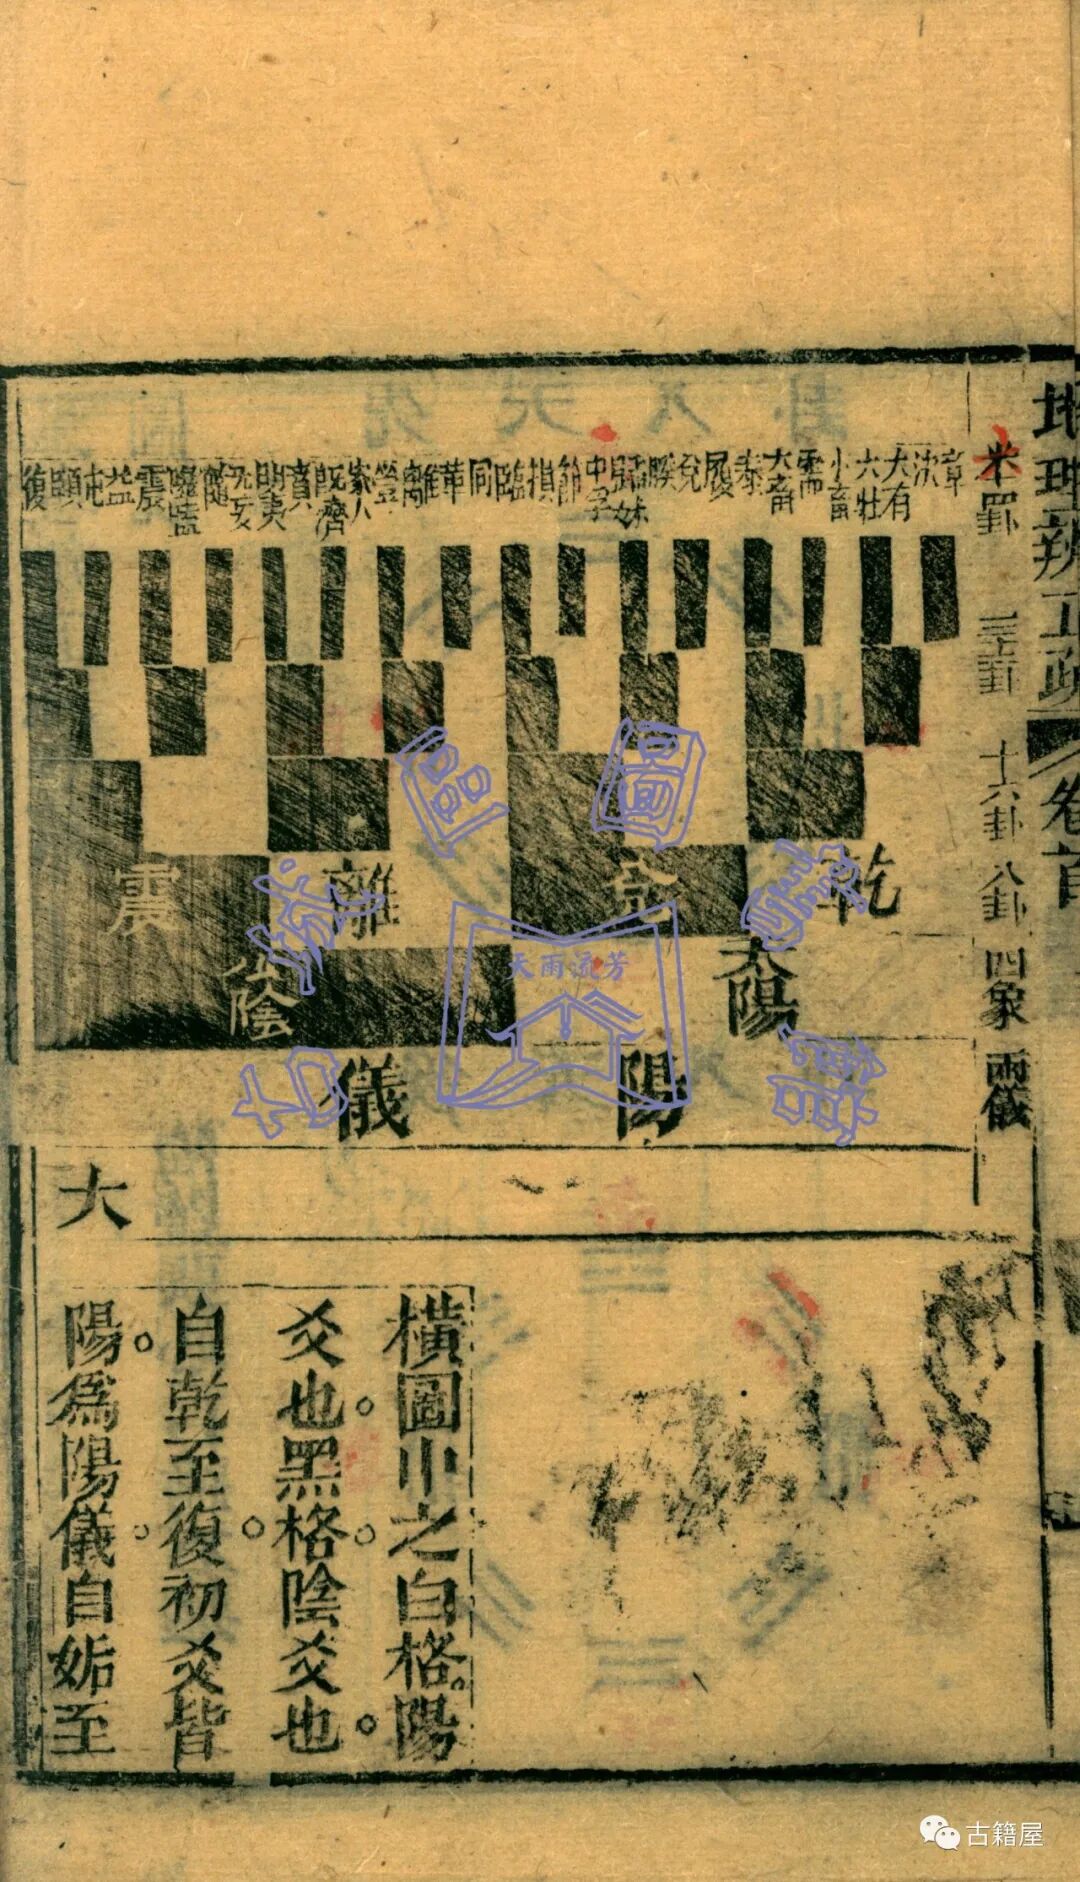 地理辨正疏
卷首
六十四卦
三十二卦
十六卦
八卦
四象
兩儀
大有
大壯
小畜
需
大畜
泰
履
兌
睽
歸妹
中孚
節
損
臨
同
革
離
豐
家人
既濟
賁
明夷
无妄
隨
噬嗑
震
益
屯
頤
復
乾
離
震
太陽
少陰
陽
儀
大
橫圖中之白格陽
爻也黑格陰爻也
自乾至復初爻皆
陽為陽儀自姤至
天雨流芳
古籍屋